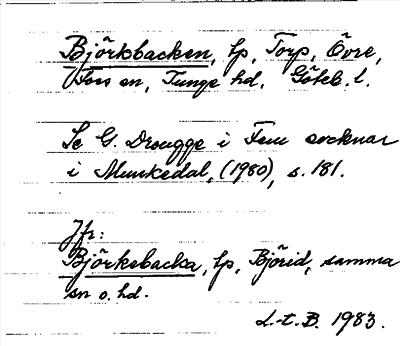 Björkbacken, lp, Torp, Övre,
Foss sn, Tunge hd, Göteb. l.
Se G. Drougge i Fem socknar
i Munkedal, (1980), s. 181.
Jfr:
Björkebacka, lp, Björid, samma
sn o. hd.
L.-t. B. 1983.